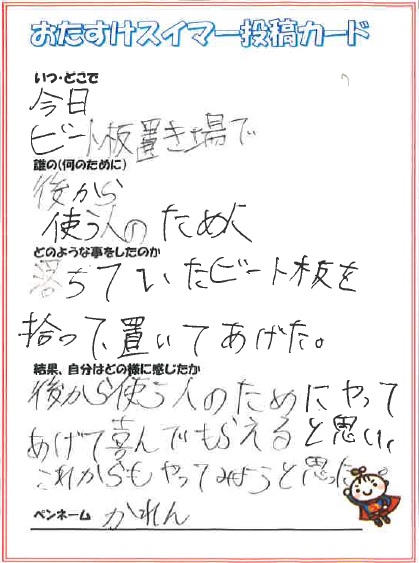 おたすけスイマー投稿カード
いつ・どこで
今日
ビート板置き場で
誰の(何のために)
後から
使う人のために
どのような事をしたのか
落ちていたビート板を
拾って、置いてあげた。
結果、自分はどの様に感じたか
後から使う人のためにやって
あげて喜んでもらえると思い、
これからもやってみようと思った。
ペンネーム かれん